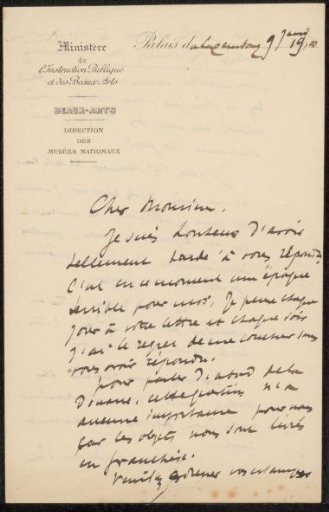 Ministère
de
l'Instruction Publique
et des Beaux-Arts
BEAUX-ARTS
DIRECTION
DES
MUSÉES NATIONAUX
Palais du Luxembourg 9
Cher Monsieur,
Je suis honteux d'avoir
tellement tardé à vous répondre
C'est en ce moment une époque
terrible pour moi. Je pense chaque
jour à votre lettre et chaque soir
j'ai le regret de me coucher sans
vous avoir répondu.
Pour parler d'abord de la
Douane, cette question n'a
aucune importance pour nous
car les objets nous sont livrés
en franchise.
Veuillez donner vos